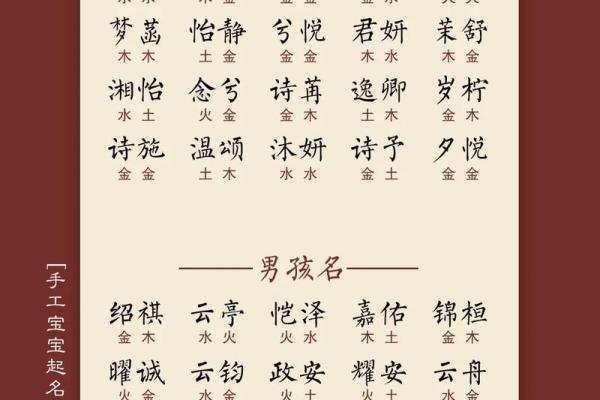 梦菡 怡静 兮悦 君妍 茉舒
木木 土金 金金 木水 木金
湘怡 念兮 诗苒 逸卿 岁柠
水土 火金 金木 土木 金木
诗施 温颂 沐妍 诗予 夕悦
金金 土木 水水 金土 金金
男孩名
绍祺 云亭 恺泽 嘉佑 锦桓
金木 水火 火水 木土 金木
曜诚 云钧 政安 耀安 云舟
[手工宝宝起名